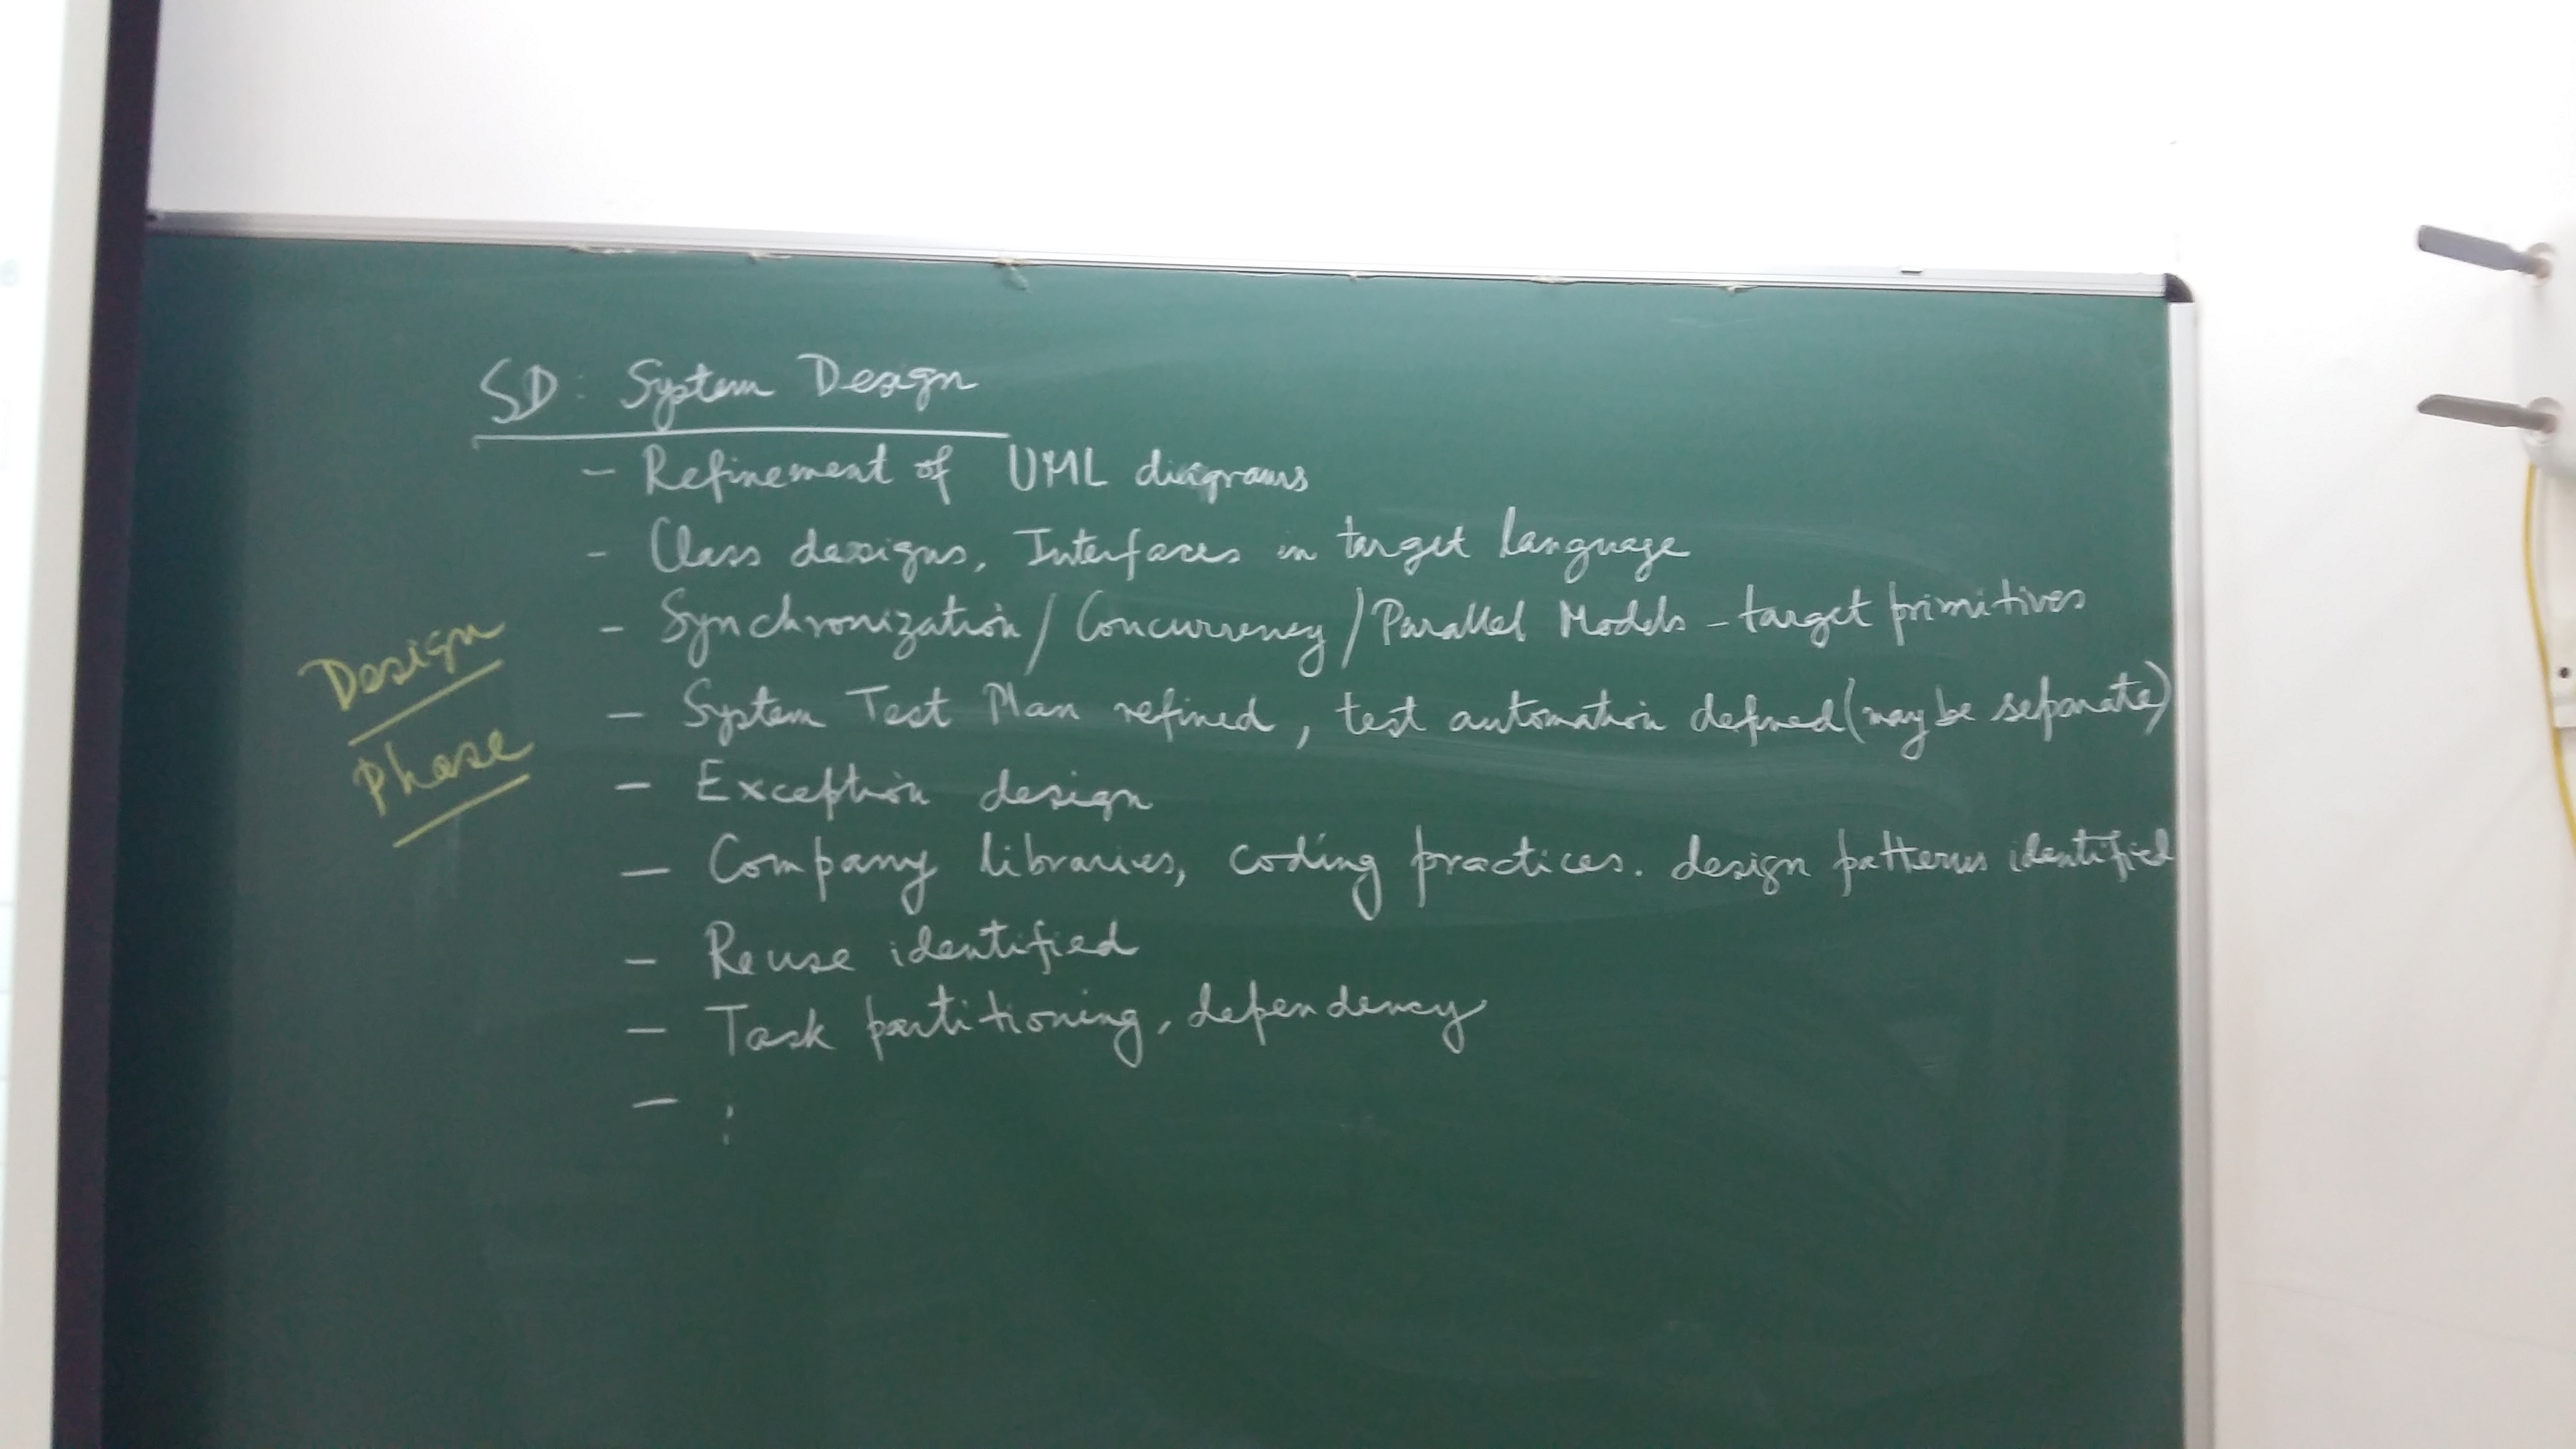 SD: System Design
- Refinement of UML diagrams
- Class designs, Interfaces in target language
- Synchronization / Concurrency / Parallel Models - target primitives
Design
Phase
- System Test Plan refined, test automation defined (may be separate)
- Exception design
- Company libraries, coding practices. design patterns identified
- Reuse identified
- Task partitioning, dependency
- :